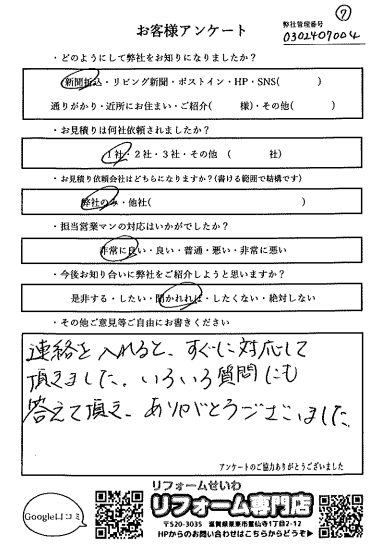 ⑦
お客様アンケート
弊社管理番号
0302407004
・どのようにして弊社をお知りになりましたか？
新聞折込・リビング新聞・ポストイン・HP・SNS( )
通りがかり・近所にお住まい・ご紹介( 様)・その他( )
・お見積りは何社依頼されましたか？
1社・2社・3社・その他 ( 社)
・お見積り依頼会社はどちらになりますか？(書ける範囲で結構です)
弊社のみ・他社( )
・担当営業マンの対応はいかがでしたか？
非常に良い・良い・普通・悪い・非常に悪い
・今後お知り合いに弊社をご紹介しようと思いますか？
是非する・したい・聞かれれば・したくない・絶対しない
・その他ご意見等ご自由にお書きください
連絡を入れると、すぐに対応して
頂きました。いろいろ質問にも
答えて頂き、ありがとうございました
アンケートのご協力ありがとうございました
Google口コミ
リフォームせいわ
リフォーム専門店
〒520-3035 滋賀県栗東市霊仙寺1丁目2-12
HPからのお問い合わせはこちらからどうぞ▶